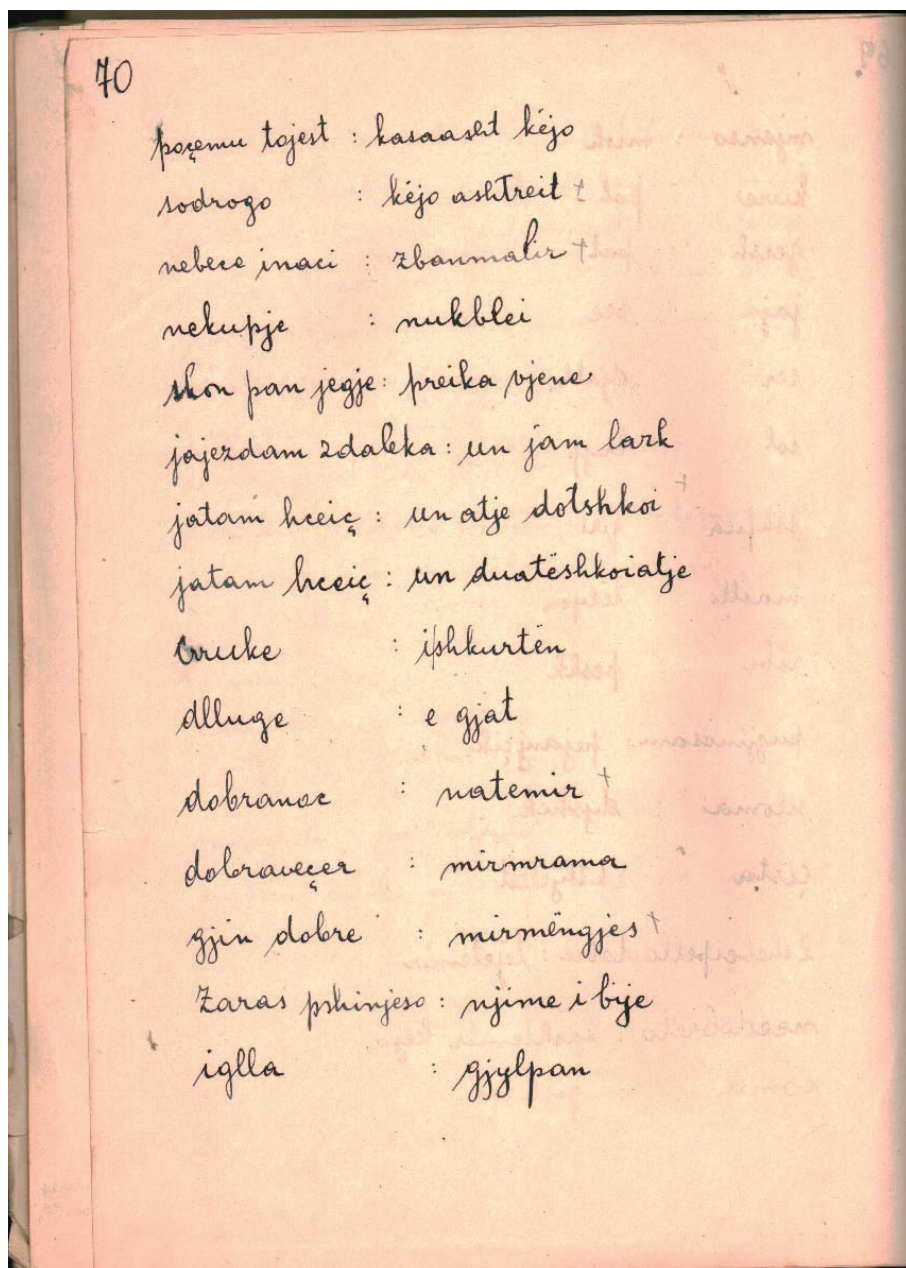 70
poçemu tojest : kasaasht kėjo
sodrogo : kėjo ashtreit +
nebece inaci : zbanmalir +
nekupje : nukblei
skon pan jegje : preika vjene
jajezdam zdaleka : un jam lark
jatam hceiç : un atje dotshkoi +
jatam hceiç : un duatëshkoiatje
cruke : ishkurtën
dlluge : e gjat
dobranoc : natemir +
dobraveçer : mirmrama
gjin dobre : mirmëngjes +
Zaras pshinjeso : njime i bije
iglla : gjylpan